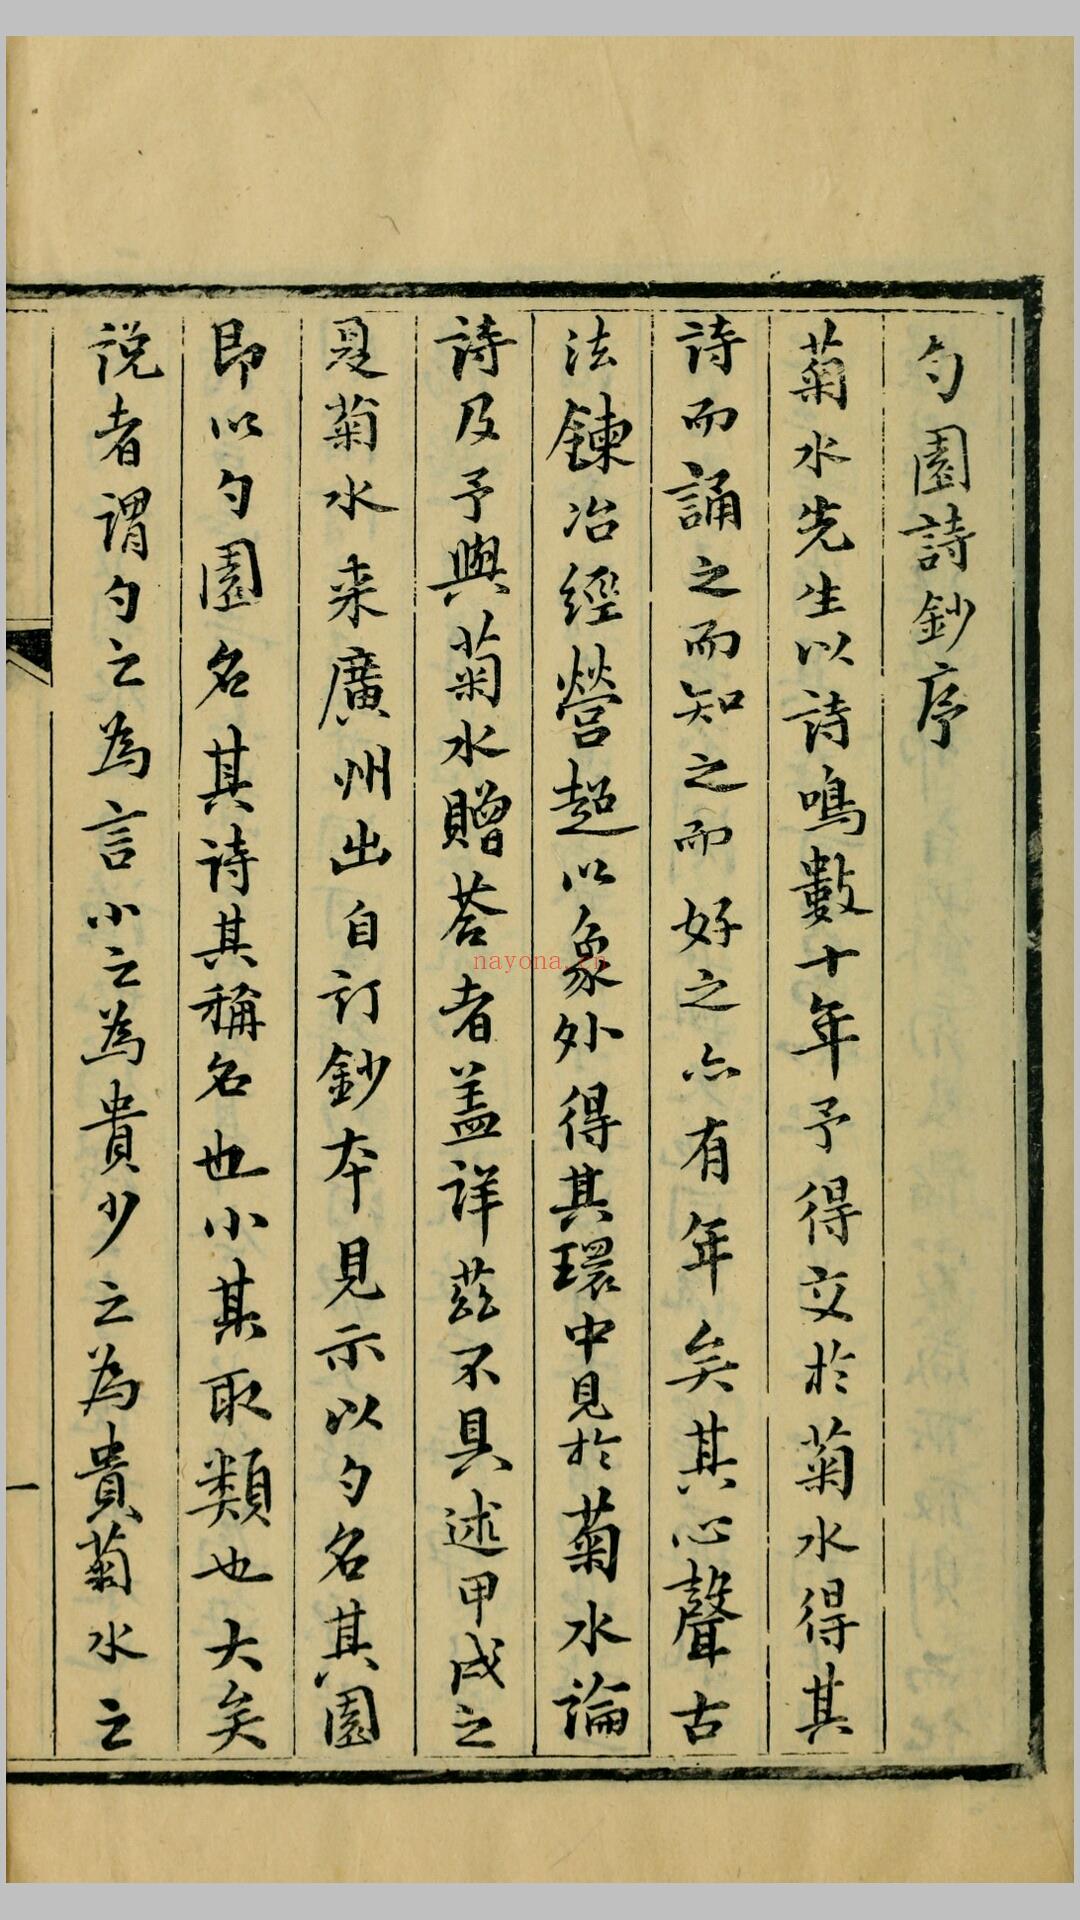 勺園詩鈔序
菊水先生以詩鳴數十年予得交於菊水得其
詩而誦之而知之而好之亦有年矣其心聲古
法鍊冶經營超以象外得其環中見於菊水論
詩及予與菊水贈荅者盖詳茲不具述甲戌之
夏菊水来廣州出自訂鈔本見示以勺名其園
即以勺園名其詩其稱名也小其取類也大矣
説者謂勺之為言小之為貴少之為貴菊水之
一
nayona.cn